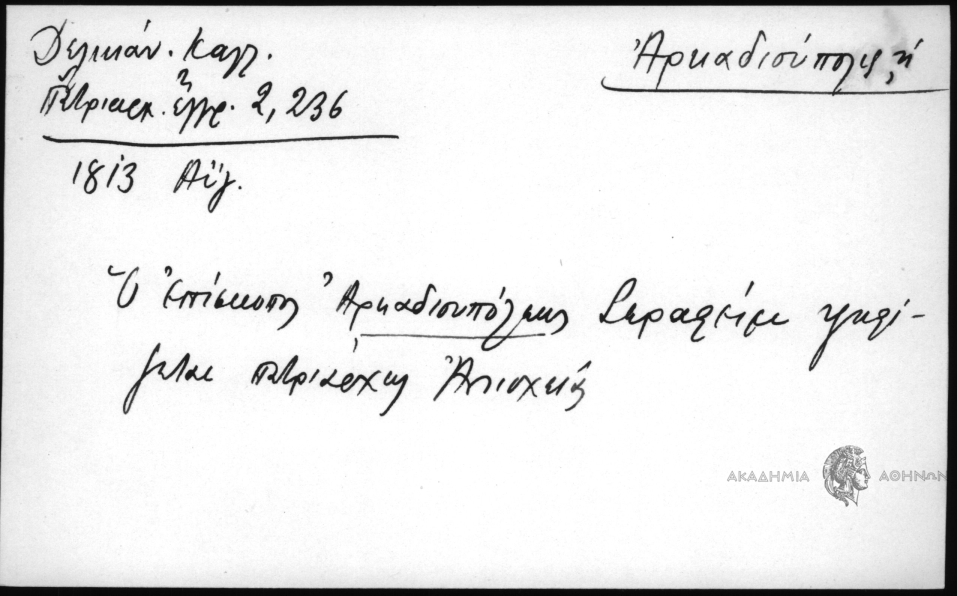 Δελικάν. Καλλ.
Πατριαρχ. ἔγγρ. 2, 236
Ἀρκαδιούπολις, ἡ
1813 Αὔγ.
Ὁ ἐπίσκοπος Ἀρκαδιουπόλεως Σεραφείμ ψηφί-
ζεται πατριάρχης Ἀντιοχείας
ΑΚΑΔΗΜΙΑ ΑΘΗΝΩΝ